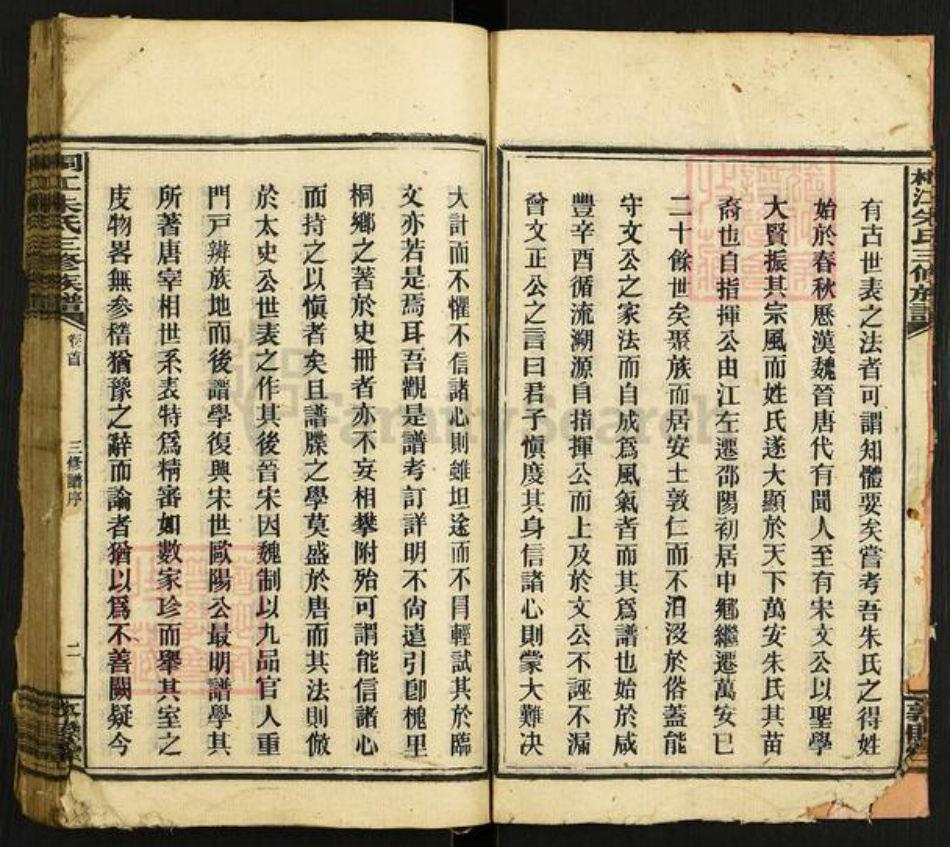 江朱氏三修族譜
有古世表之法者可謂知體要矣嘗考吾朱氏之得姓
始於春秋厯漢魏晉唐代有聞人至有宋文公以聖學
大賢振其宗風而姓氏遂大顯於天下萬安朱氏其苗
裔也自指揮公由江左遷邵陽初居中鄉繼遷萬安已
二十餘世矣聚族而居安土敦仁而不汩沒於俗蓋能
守文公之家法而自成爲風氣者而其爲譜也始於咸
豐辛酉循流溯源自指揮公而上及於文公不誣不漏
曾文正公之言曰君子慎度其身信諸心則蒙大難决
大計而不懼不信諸心則雖坦途而不肎輕試其於臨
文亦若是焉耳吾觀是譜考訂詳明不尙遠引卽槐里
桐鄉之著於史冊者亦不妄相攀附殆可謂能信諸心
而持之以愼者矣且譜牒之學莫盛於唐而其法則倣
於太史公世表之作其後晉宋因魏制以九品官人重
門戸辨族地而後譜學復興宋世歐陽公最明譜學其
所著唐宰相世系表特爲精審如數家珍而舉其室之
庋物畧無參櫣猶豫之辭而論者猶以爲不善闕疑今
江朱氏三修族譜
卷首
三修譜序
二
FamilySearch